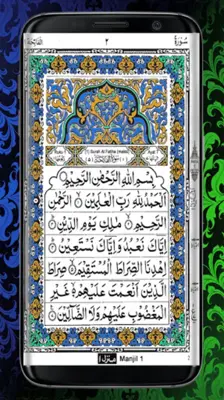 الفاتحة ٢ سورة
Surah Al Fatiha (Makki)
بِسْمِ اللهِ الرَّحْمٰنِ الرَّحِيْمِ
اَلْحَمْدُ لِلّٰهِ رَبِّ الْعٰلَمِيْنَ الرَّحْمٰنِ
الرَّحِيْمِ مٰلِكِ يَوْمِ الدِّيْنِ
اِيَّاكَ نَعْبُدُ وَاِيَّاكَ نَسْتَعِيْنُ
اِهْدِنَا الصِّرَاطَ الْمُسْتَقِيْمَ صِرَاطَ
الَّذِيْنَ اَنْعَمْتَ عَلَيْهِمْ غَيْرِ
الْمَغْضُوْبِ عَلَيْهِمْ وَلَا الضَّآلِّيْنَ
منزل ١ Manjil 1